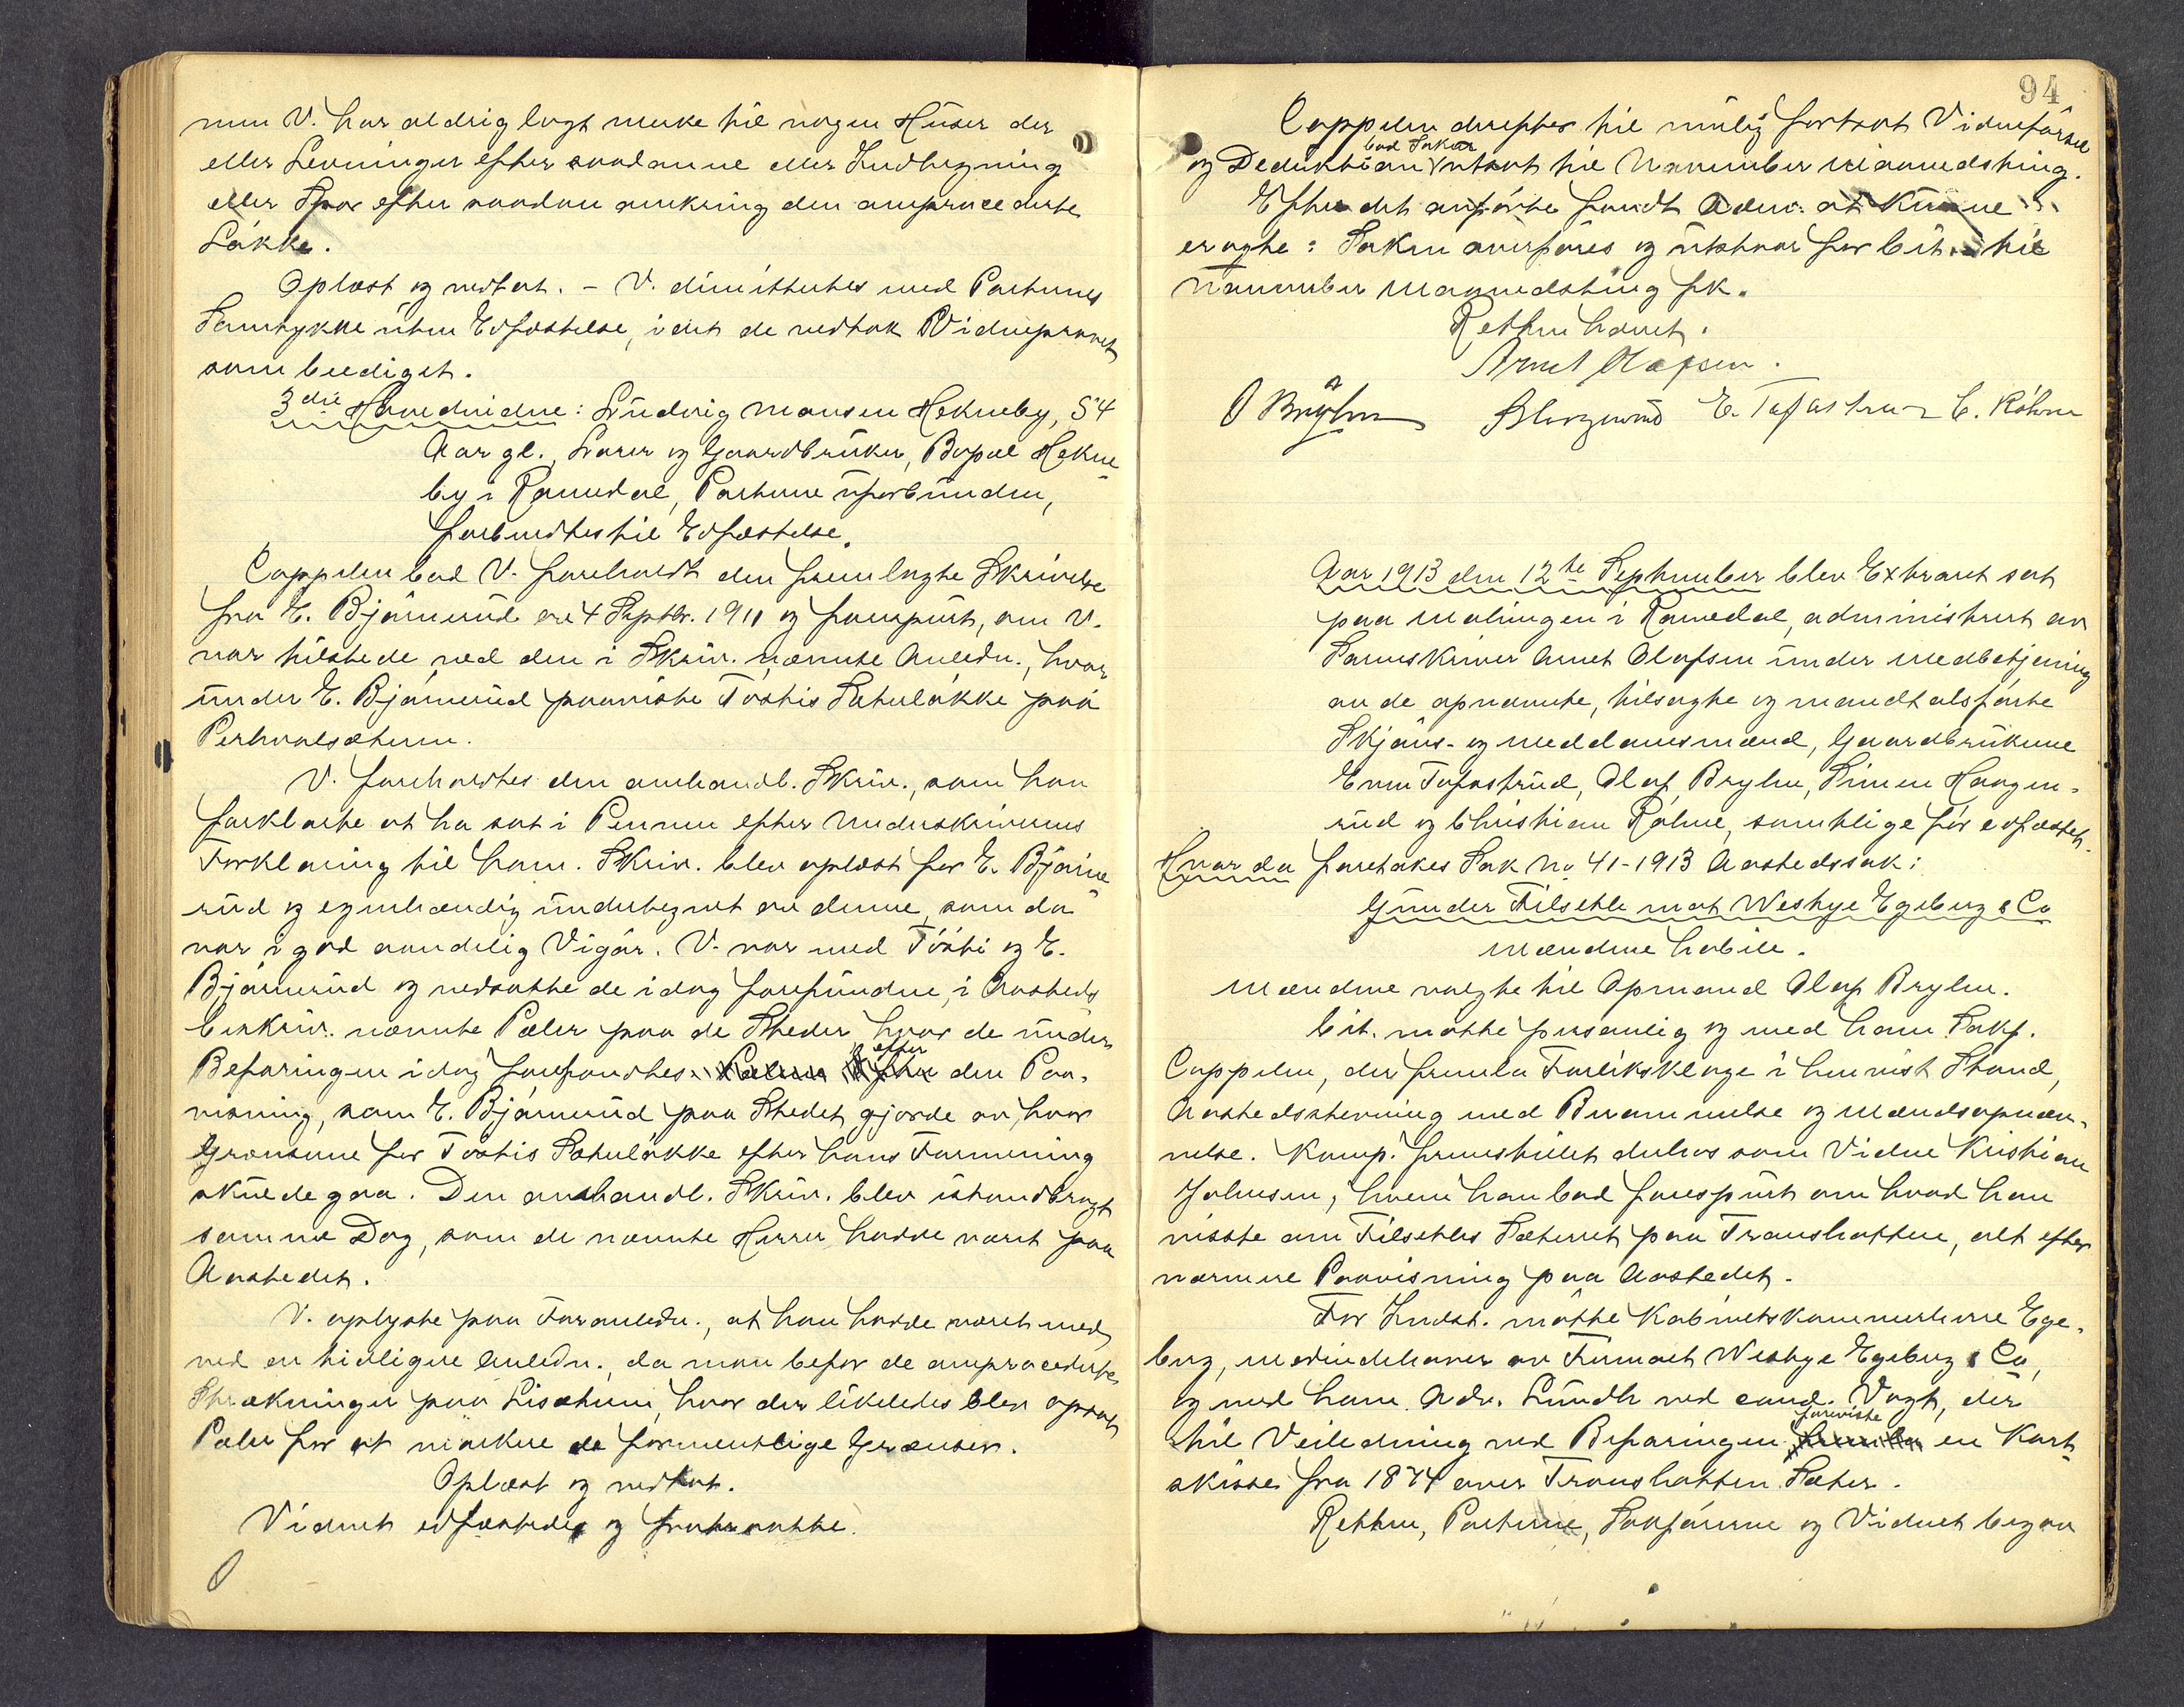 men V. har aldrig lagt merke til nogen Huser der
eller Levninger efter saadanne eller Indhegning
eller Spor efter saadan omkring den omprocederte
Løkke.
Oplæst og vedtat. – V. dimittertes med Parternes
Samtykke uten Edfæstelse, idet de vedtok Vidneprovet
som beediget.
3die Hovedvidne: Ludvig Mansen Hekneby, 54
Aar gl., Lærer og Gaardbruker, Bopæl Hekne-
by i Romedal, Parterne uforbunden,
forberedtes til Edfæstelse.
Cappelen bad V. foreholdt den fremlagte Skrivelse
fra E. Bjørnerud av 4 Septbr. 1911 og forespurt, om V.
var tilstede ved den i Skriv. nævnte Anledn., hvor-
under E. Bjørnerud paaviste Tostis Sæterløkke paa
Perhvalsæteren.
V. foreholdtes den omhandl. Skriv., som han
forklarte at ha sat i Pennen efter Underskriverens
Forklaring til ham. Skriv. blev oplæst for E. Bjørne-
rud og egenhændig undertegnet av denne, som da
var i god aandelig Vigør. V. var med Tosti og E.
Bjørnerud og nedsatte de idag forefundne, i Aasteds
beskriv. nævnte Pæler paa de Steder hvor de under
Befaringen idag forefandtes efter den Paa-
visning, som E. Bjørnerud paa Stedet gjorde av, hvor
Grænserne for Tostis Sæterløkke efter hans Formening
skulde gaa. Den omhandl. Skriv. blev istandbragt
samme Dag, som de nævnte Herrer hadde været paa
Aastedet.
V. oplyste paa Foranledn., at han hadde været med
ved en tidligere Anledn., da man befor de omprocederte
Strækninger paa Lisæteren, hvor der likeledes blev opsat
Pæler for at markere de formentlige Grænser.
Oplæst og vedtat.
Vidnet edfæstedes og fratraatte.
94
Cappelen derefter til mulig fortsat Vidneførsel
bad Saken
og Deduktion utsat til November Maanedsting.
Efter det anførte fandt Adm. at kunne
eragte: Saken overføres og utstaar for Cit. til
November Maanedsting fk.
Retten hævet.
Arnet Olafsen.
O Brylm E. Tofastrud C. Røhne
Aar 1913 den 12te September blev Extraret sat
paa Malungen i Romedal, administrert av
Sorenskriver Arnet Olafsen under Medbetjening
av de opnævnte, tilsagte og mandtalsførte
Skjøns- og Meddomsmænd, Gaardbrukerne
Even Tofastrud, Olaf Brylm, Simen Haagen-
rud og Christian Røhne, samtlige før edfæstet.
Hvor da foretakes Sak No 41-1913 Aastedssak:
Gunder Filseth mot Westye Egeberg & Co
Mændene habile.
Mændene valgte til Opmand Olaf Brylm.
Cit. møtte personlig og med ham Sakf.
Cappelen, der fremla Forliksklage i henvist Stand,
Aastedsstevning med Berammelse og Mændsopnæv-
nelse. Komp. fremstillet derhos som Vidne Kristian
Johnsen, hvem han bad forespurt om hvad han
visste om Filseths Sæterret paa Transhatten, alt efter
nærmere Paavisning paa Aastedet.
For Indst. møtte Kabinetskammerherre Ege-
berg, Medindehaver av Firmaet Westye Egeberg & Co,
og med ham Adv. Lundh ved cand. Vogt, der
foreviste
til Veiledning ved Befaringen en Kart-
skisse fra 1874 over Transhatten Sæter.
Retten, Parterne, Sakførerne og Vidnet begav